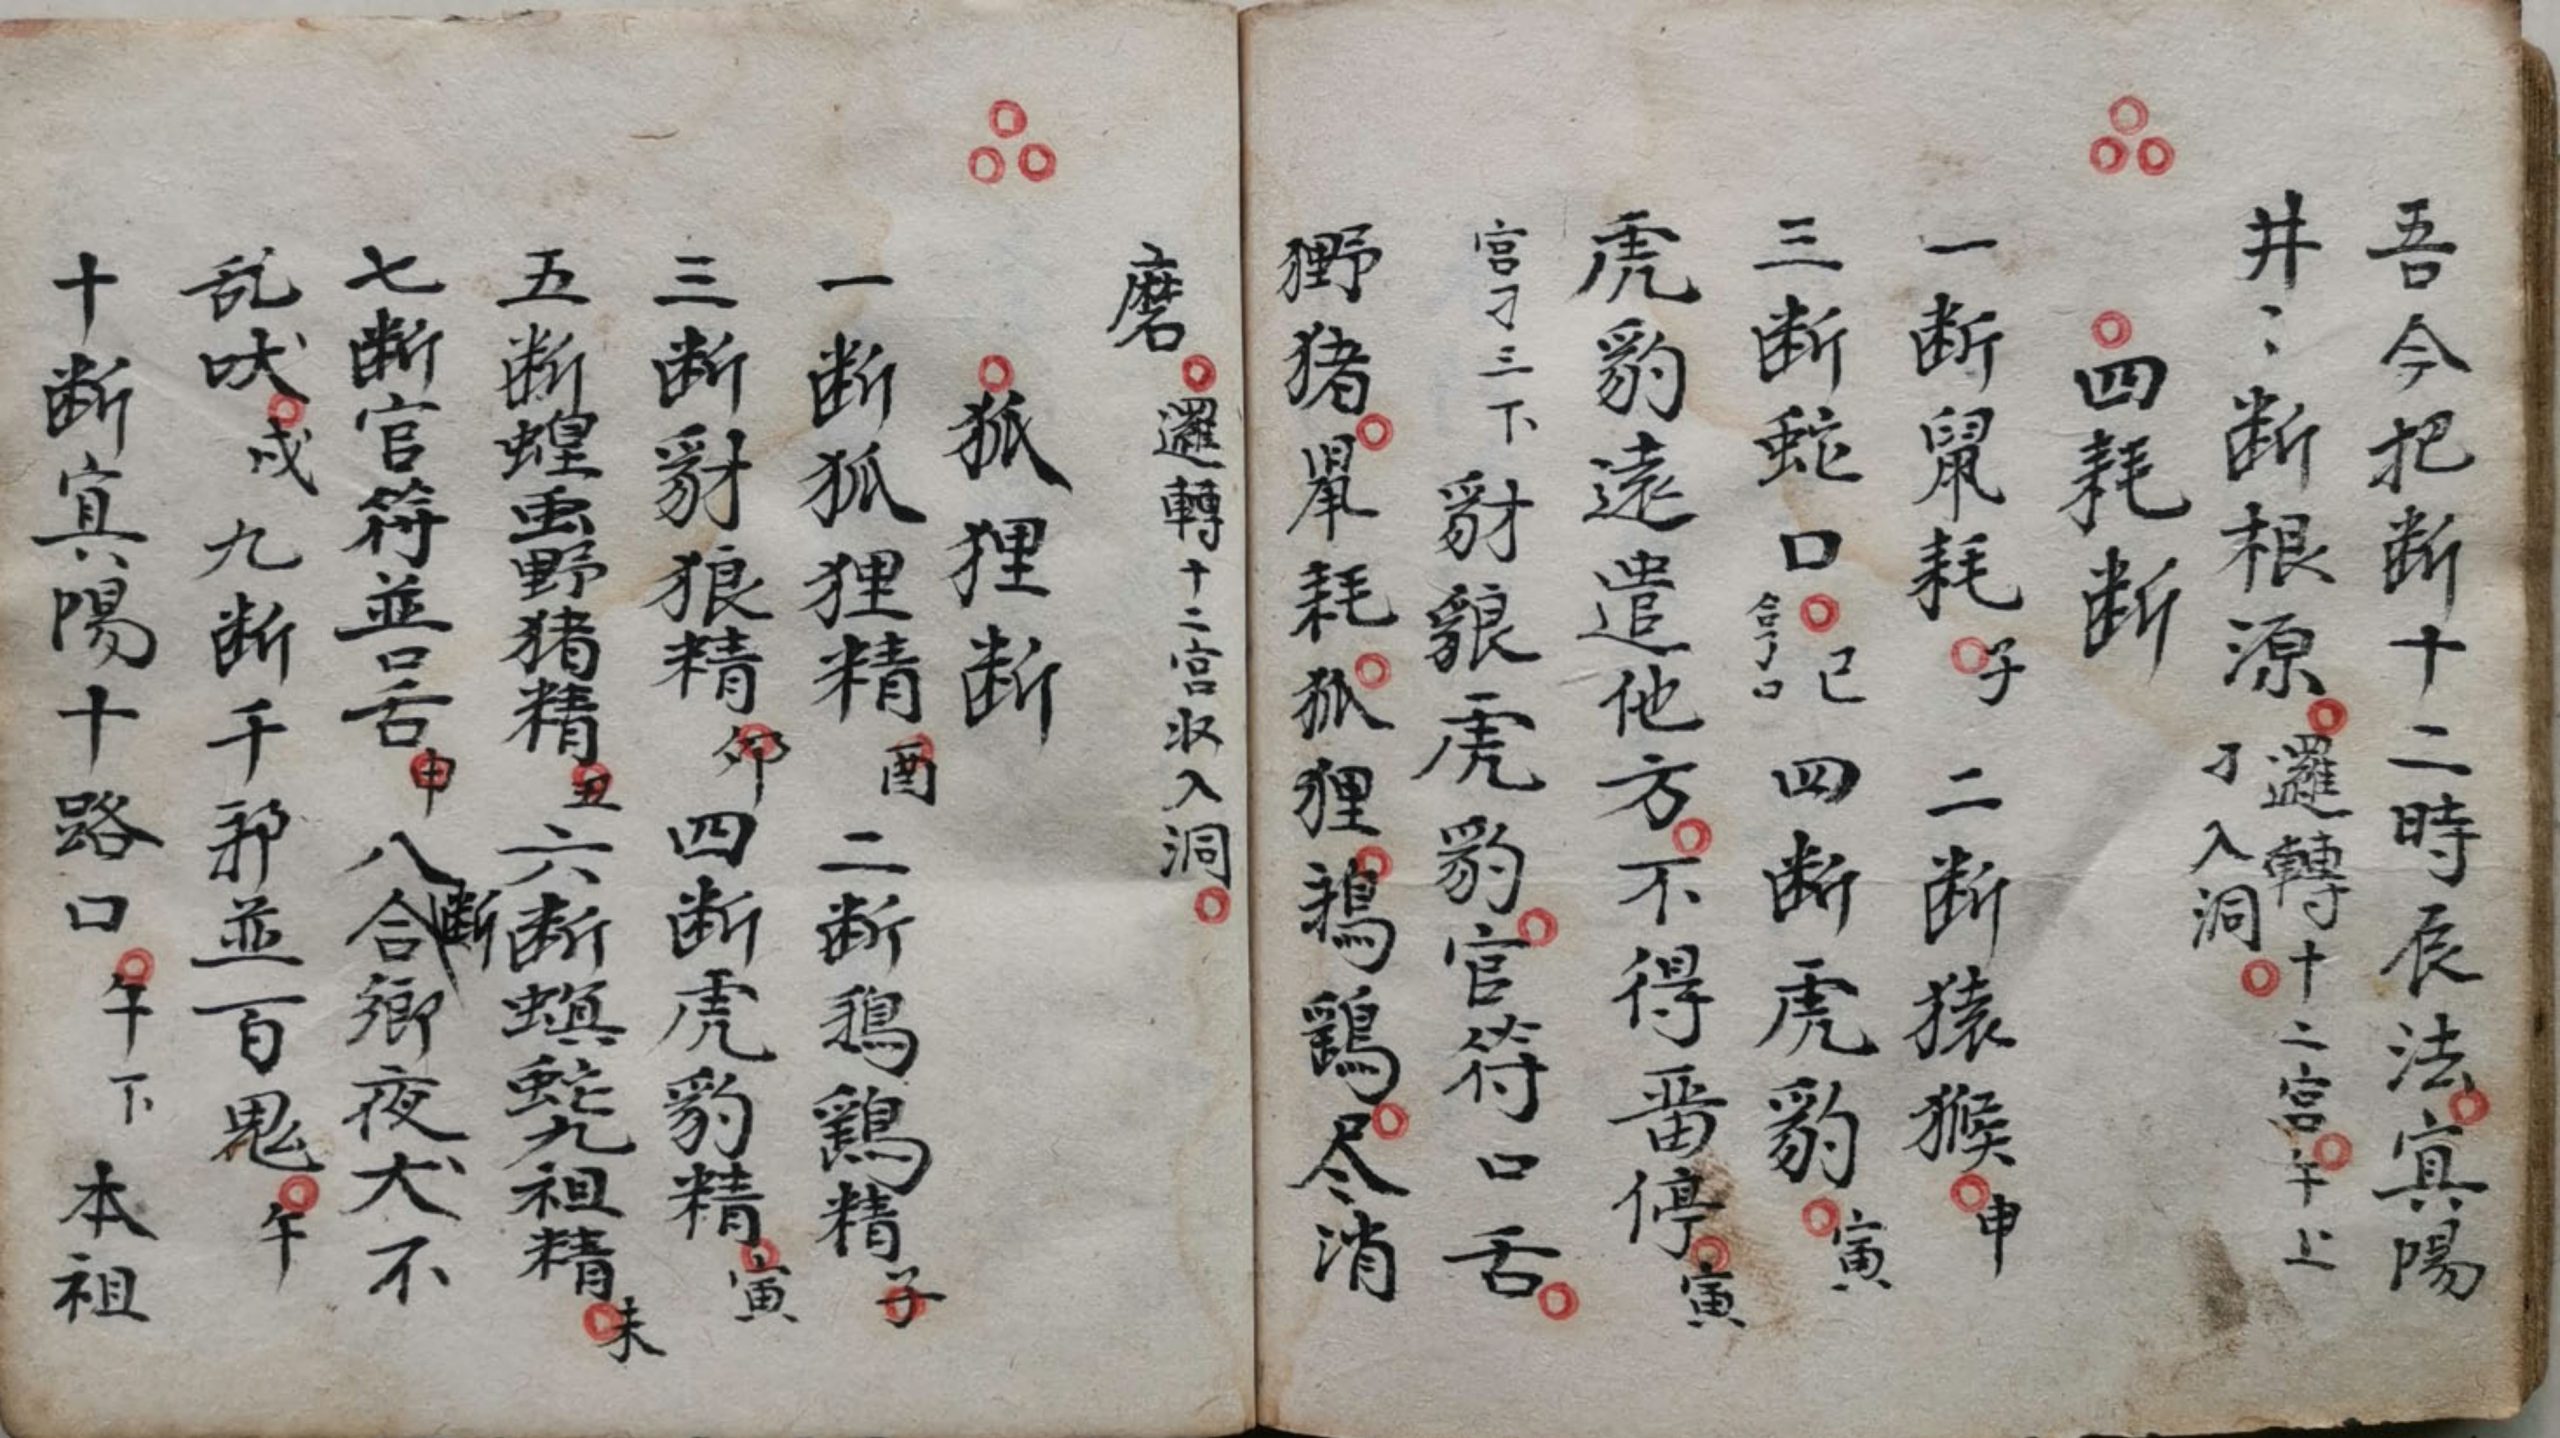 吾今把断十二時辰法寘陽
井〻断根源邏轉十二宮午上
刁入洞
四耗断
一断鼠耗子二断猿猴申
三断蛇口巳合了口四断虎豹寅
虎豹遠遣他方不得畨停寅
宮刁三下豺貇虎豹官符口舌
猂猪鼠耗狐狸鵶鷄尽消
磨邏轉十二宮収入洞
狐狸断
一断狐狸精酉二断鵶鷄精子
三断豺狼精卯四断虎豹精寅
五断蝗虫野猪精丑六断螟蛇九祖精未
七断官符並口舌申八断合鄉夜犬不
乱吠戌九断千邪並百鬼午
十断寘陽十路口午下本祖